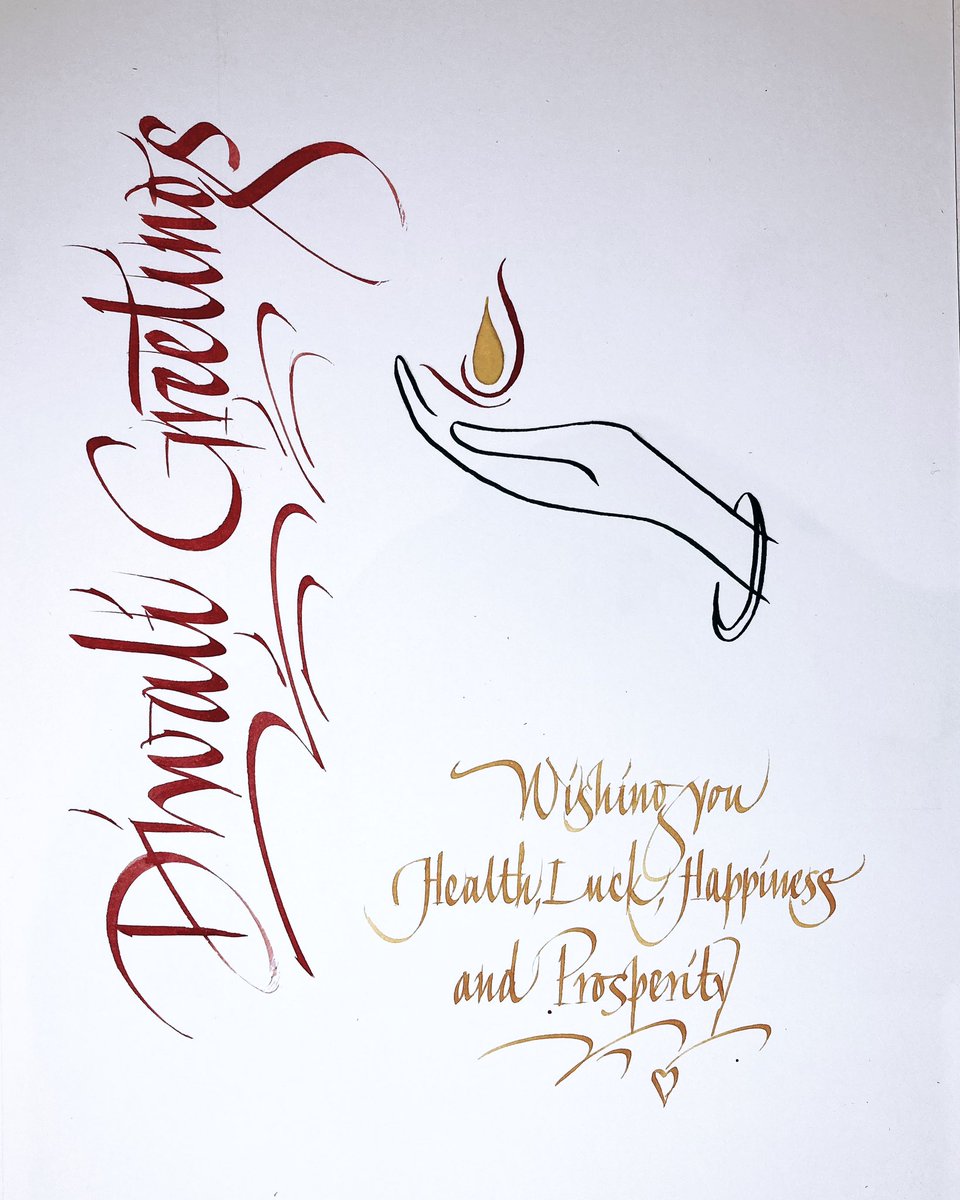 Diwali Greetings
Wishing you
Health, Luck, Happiness
and Prosperity